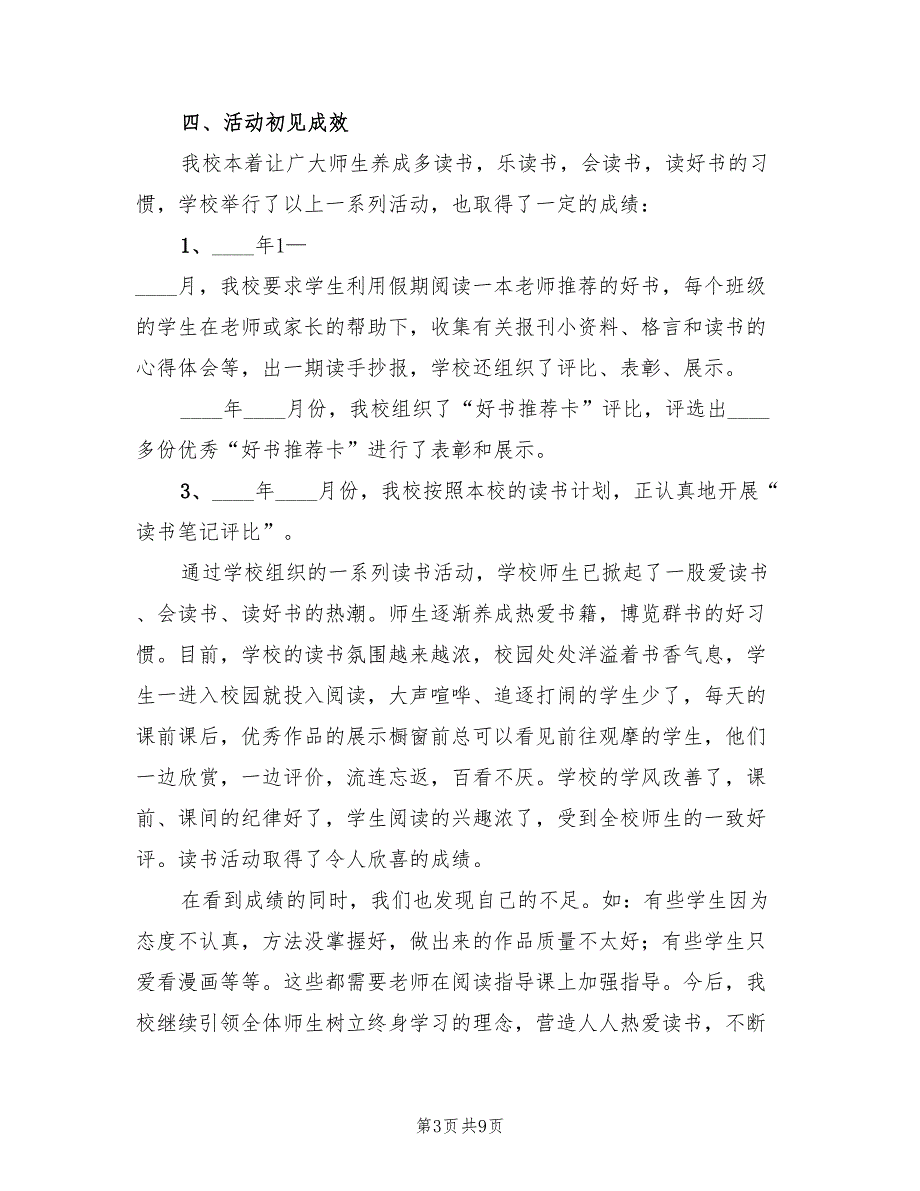 四、活动初见成效
我校本着让广大师生养成多读书，乐读书，会读书，读好书的习
惯，学校举行了以上一系列活动，也取得了一定的成绩：
1、____年1—
____月，我校要求学生利用假期阅读一本老师推荐的好书，每个班级
的学生在老师或家长的帮助下，收集有关报刊小资料、格言和读书的
心得体会等，出一期读手抄报，学校还组织了评比、表彰、展示。
____年____月份，我校组织了“好书推荐卡”评比，评选出____
多份优秀“好书推荐卡”进行了表彰和展示。
3、____年____月份，我校按照本校的读书计划，正认真地开展“
读书笔记评比”。
通过学校组织的一系列读书活动，学校师生已掀起了一股爱读书
、会读书、读好书的热潮。师生逐渐养成热爱书籍，博览群书的好习
惯。目前，学校的读书氛围越来越浓，校园处处洋溢着书香气息，学
生一进入校园就投入阅读，大声喧哗、追逐打闹的学生少了，每天的
课前课后，优秀作品的展示橱窗前总可以看见前往观摩的学生，他们
一边欣赏，一边评价，流连忘返，百看不厌。学校的学风改善了，课
前、课间的纪律好了，学生阅读的兴趣浓了，受到全校师生的一致好
评。读书活动取得了令人欣喜的成绩。
在看到成绩的同时，我们也发现自己的不足。如：有些学生因为
态度不认真，方法没掌握好，做出来的作品质量不太好；有些学生只
爱看漫画等等。这些都需要老师在阅读指导课上加强指导。今后，我
校继续引领全体师生树立终身学习的理念，营造人人热爱读书，不断
第3页 共9页